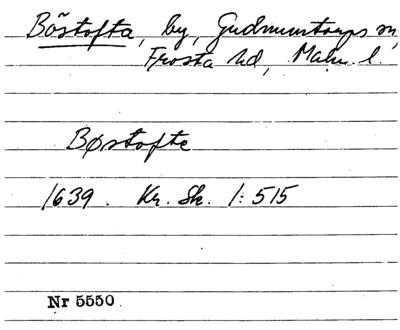 Böstofta, by, Gudmuntorps sn,
Frosta hd, Malm. l.
Bøstofte
1639. Kr. Sk. 1:515
Nr 5550